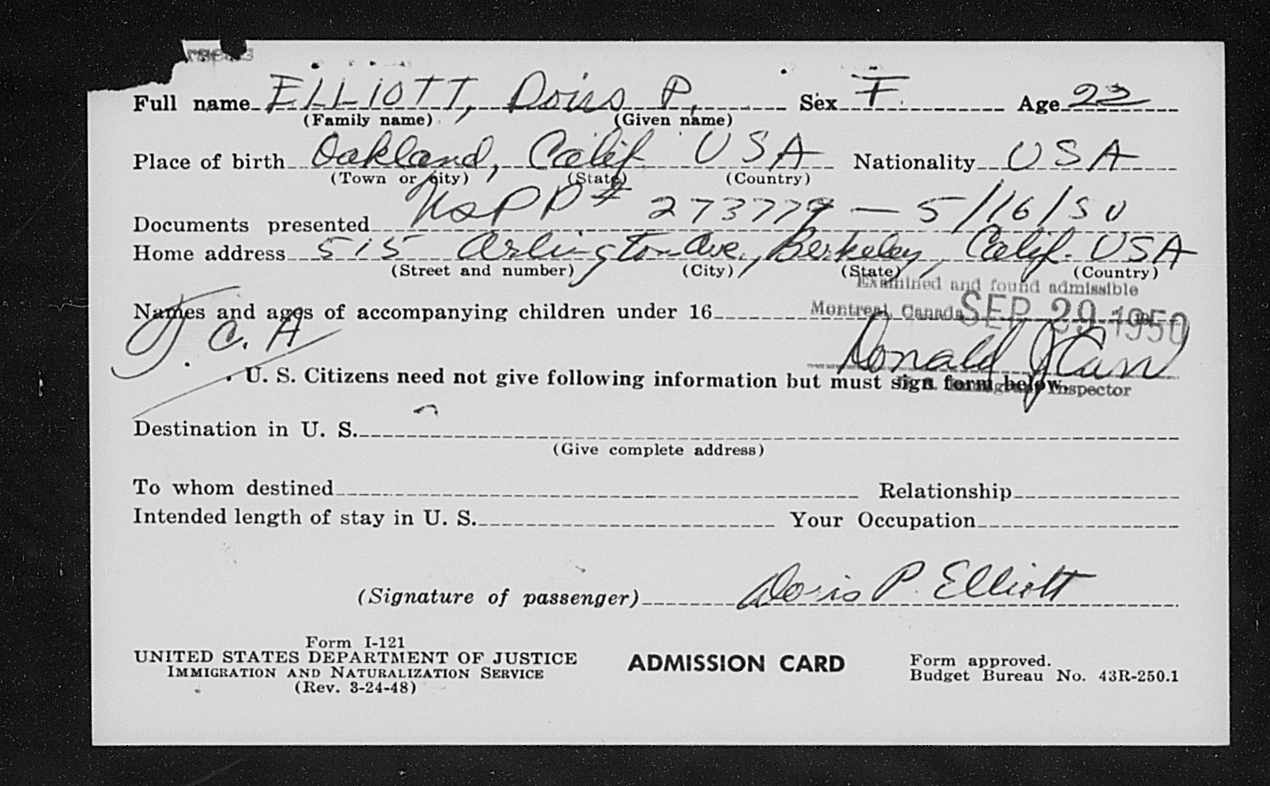 Full name ELLIOTT, Doris P. Sex F. Age 22
(Family name) (Given name)
Place of birth Oakland, Calif USA Nationality USA
(Town or city) (State) (Country)
Documents presented UsPP# 273779 — 5/16/50
Home address 515 Arlington Ave., Berkeley, Calif. USA
(Street and number) (City) (State) (Country)
Examined and found admissible
Names and ages of accompanying children under 16
Montreal, Canada SEP 29 1950
T.C.A
Donald J Carr
U. S. Citizens need not give following information but must sign form below.
Inspector
Destination in U. S.
(Give complete address)
To whom destined Relationship
Intended length of stay in U. S. Your Occupation
(Signature of passenger) Doris P. Elliott
Form I-121
UNITED STATES DEPARTMENT OF JUSTICE
IMMIGRATION AND NATURALIZATION SERVICE
(Rev. 3-24-48)
ADMISSION CARD
Form approved.
Budget Bureau No. 43R-250.1